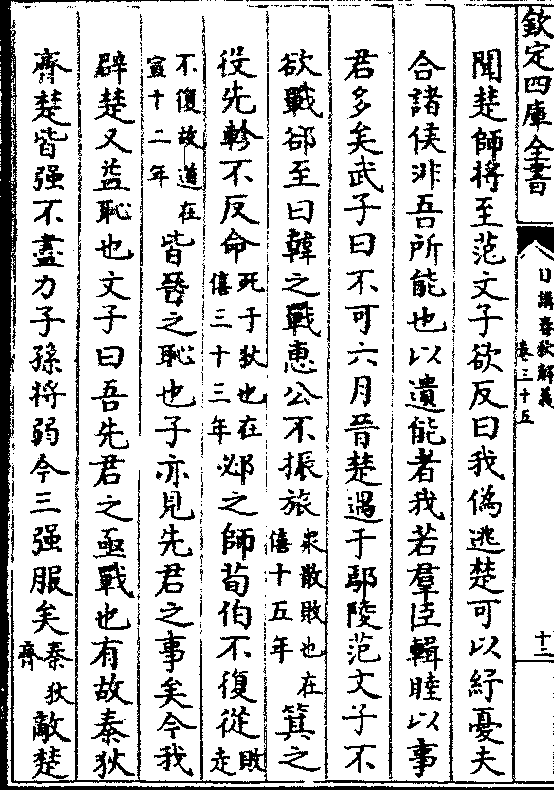 欽定四庫全書
日講春秋解義
卷三十五
十二
聞楚師將至范文子欲反曰我偽逃楚可以紓憂夫
合諸侯非吾所能也以遺能者我若羣臣輯睦以事
君多矣武子曰不可六月晉楚遇于鄢陵范文子不
欲戰郤至曰韓之戰惠公不振旅衆散敗也在僖十五年箕之
役先軫不反命死于狄也在僖三十三年邲之師荀伯不復從敗走
不復故道在宣十二年皆晉之恥也子亦見先君之事矣今我
辟楚又益恥也文子曰吾先君之亟戰也有故秦狄
齊楚皆强不盡力子孫將弱今三强服矣秦狄齊敵楚